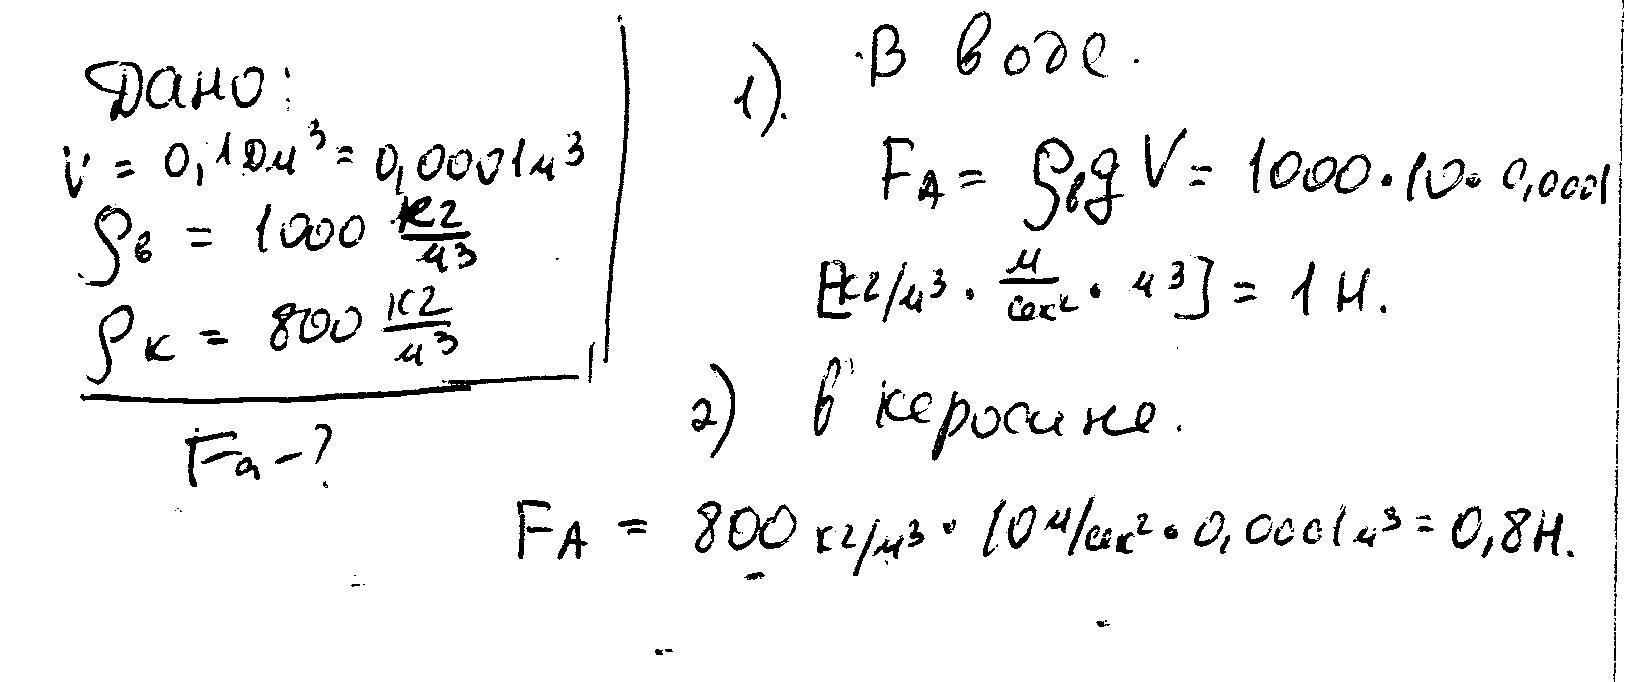 Дано:
V = 0,1 дм³ = 0,0001 м³
ρв = 1000 кг/м³
ρк = 800 кг/м³
Fа - ?
1). В воде.
FА = ρвgV = 1000 · 10 · 0,0001
[кг/м³ · м/сек² · м³] = 1 Н.
2) в керосине.
FА = 800 кг/м³ · 10 м/сек² · 0,0001 м³ = 0,8 Н.